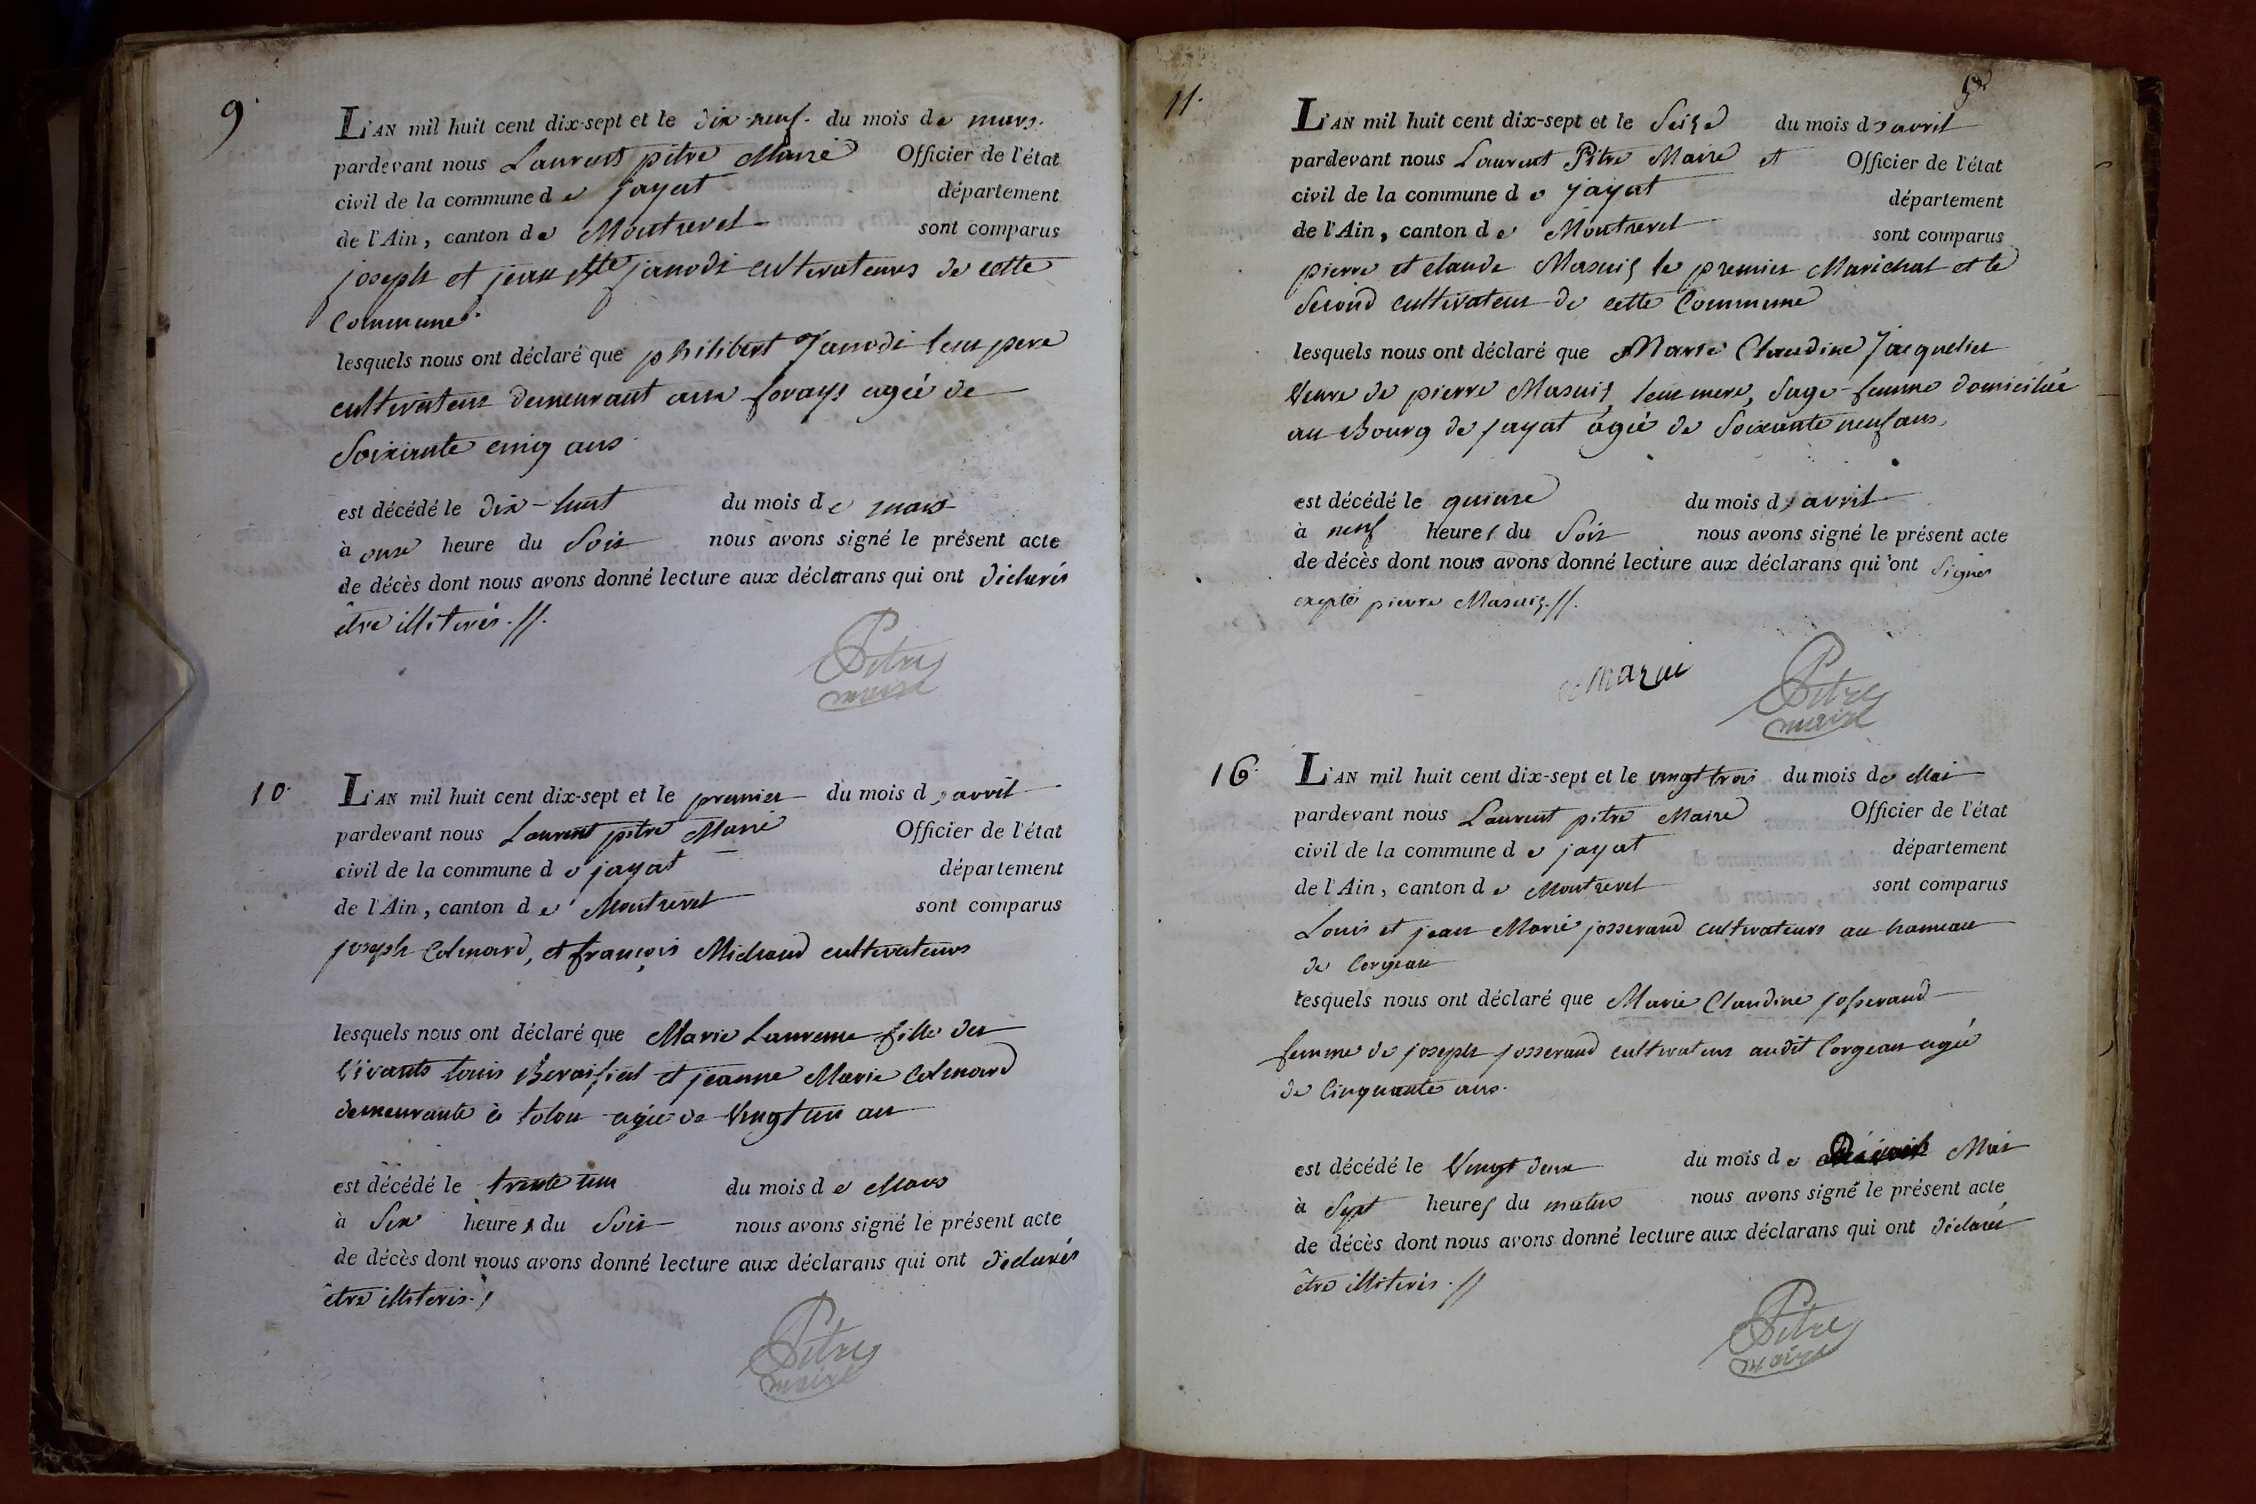 9.
L'AN mil huit cent dix-sept et le dix-neuf. du mois de mars.
pardevant nous Laurent pitre Maire Officier de l'état
civil de la commune de jayat département
de l'Ain, canton de Montrevel sont comparus
joseph et jean Bte janodi cultivateurs de cette
Commune.
lesquels nous ont déclaré que philibert Janodi leur pere
cultivateur demeurant aux forays agéé de
Soixante cinq ans.
est décédé le dix-huit du mois de mars
à onze heure du Soir nous avons signé le présent acte
de décès dont nous avons donné lecture aux déclarans qui ont déclarés
être illiterés.//.
Pitre
maire
10.
L'AN mil huit cent dix-sept et le premier du mois d'avril
pardevant nous Laurent pitre Maire Officier de l'état
civil de la commune de jayat département
de l'Ain, canton de Montrevel sont comparus
joseph Colmard, et françois Michaud cultivateurs
lesquels nous ont déclaré que Marie Laurence fille des
Vivants Louis et jeanne Marie Colmard
demeurante à tolou agée de Vingt un an
est décédé le trente un du mois de Mars
à Six heures du Soir nous avons signé le présent acte
de décès dont nous avons donné lecture aux déclarans qui ont déclarés
être illiteris./
Pitre
maire
11.
L'AN mil huit cent dix-sept et le Seize du mois d'avril
pardevant nous Laurent Pitre Maire et Officier de l'état
civil de la commune de jayat département
de l'Ain, canton de Montrevel sont comparus
pierre et claude Masuis le premier Maréchal et le
Second cultivateur de cette Commune
lesquels nous ont déclaré que Marie Claudine Jacquelin
Veuve de pierre Masuis, leur mere, Sage-femme domiciliée
au Bourg de jayat ágée de Soixante neuf ans,
est décédé le quinze du mois d'avril
à neuf heures du Soir nous avons signé le présent acte
de décès dont nous avons donné lecture aux déclarans qui ont Signés
excepté pierre Masuis.//.
mazui
Pitre
maire
16.
L'AN mil huit cent dix-sept et le vingt trois du mois de Mai
pardevant nous Laurent pitre Maire Officier de l'état
civil de la commune de jayat département
de l'Ain, canton de Montrevel sont comparus
Louis et jean Marie josserand cultivateurs au hameau
de Corgeau
lesquels nous ont déclaré que Marie Claudine josserand
femme de joseph josserand cultivateur audit Corgeau agée
de Cinquante ans.
est décédé le Vingt deux du mois de Mai
à Sept heures du matin nous avons signé le présent acte
de décès dont nous avons donné lecture aux déclarans qui ont déclaré
être illiterés.//
Pitre
maire